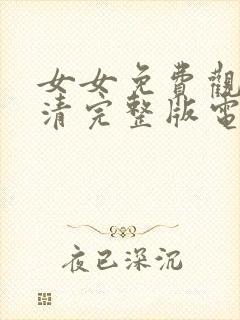 女女免費觀
清完整版電
夜已深沉